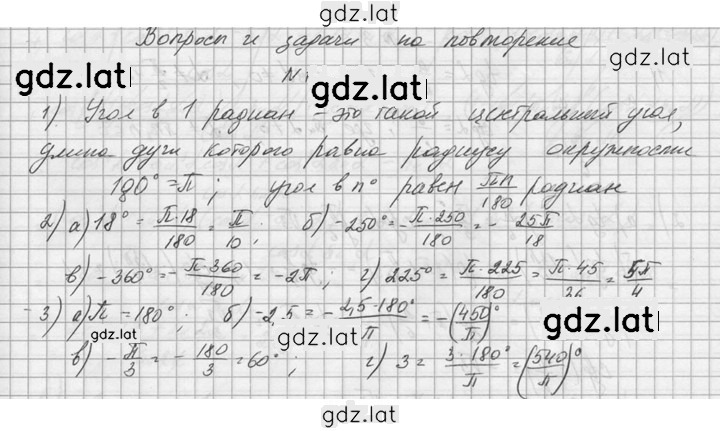 gdz.lat
Вопросы и задачи на повторение
gdz.lat gdz.lat gdz.lat
N1
1) Угол в 1 радиан - это такой центральный угол,
длина дуги которого равна радиусу окружности
180° = π; угол в n° равен πn/180 радиан
2) а) 18° = π·18/180 = π/10; б) -250° = -π·250/180 = -25π/18
в) -360° = -π·360/180 = -2π; г) 225° = π·225/180 = π·45/36 = 5π/4
3) а) π = 180°; б) -2,5 = -2,5·180°/π = -(450/π)°
gdz.lat gdz.lat
в) -π/3 = -180/3 = 60°; г) 3 = 3·180°/π = (540/π)°
gdz.lat